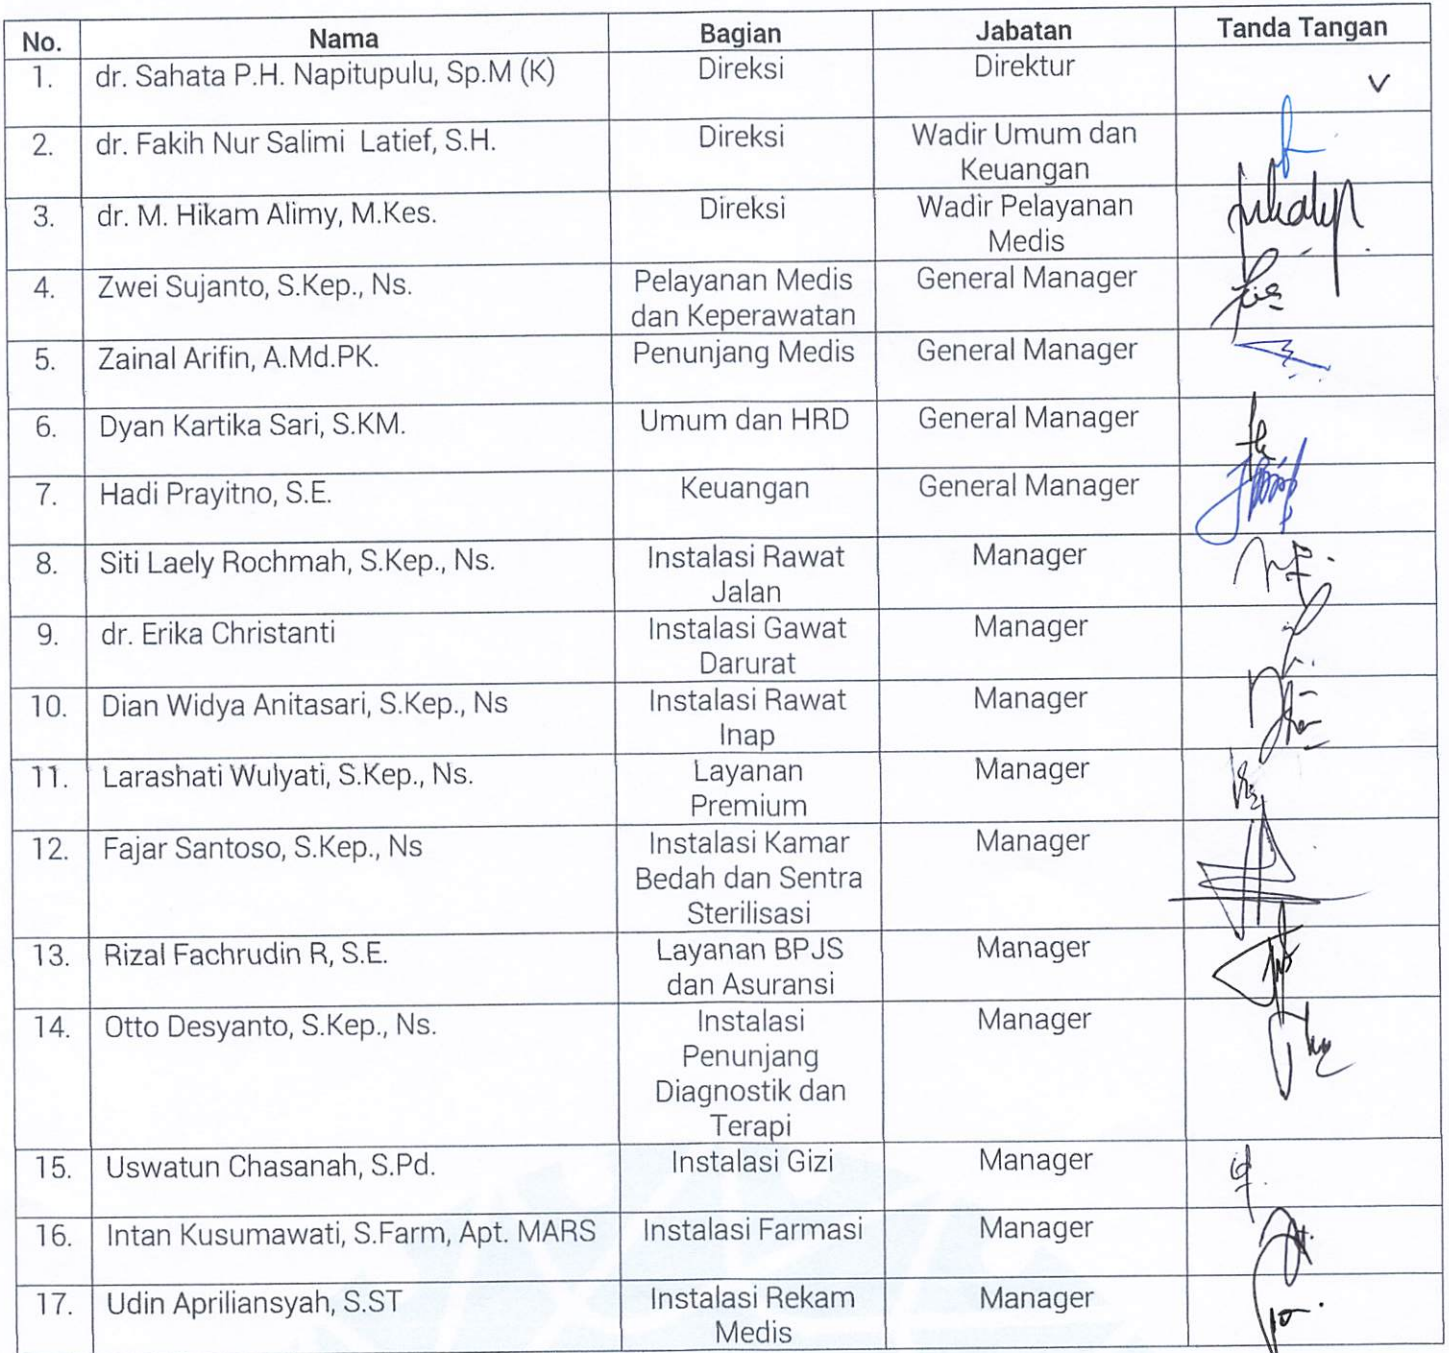 No. Nama Bagian Jabatan Tanda Tangan
1. dr. Sahata P.H. Napitupulu, Sp.M (K) Direksi Direktur v
2. dr. Fakih Nur Salimi Latief, S.H. Direksi Wadir Umum dan
Keuangan
3. dr. M. Hikam Alimy, M.Kes. Direksi Wadir Pelayanan
Medis
4. Zwei Sujanto, S.Kep., Ns. Pelayanan Medis General Manager
dan Keperawatan
5. Zainal Arifin, A.Md.PK. Penunjang Medis General Manager
6. Dyan Kartika Sari, S.KM. Umum dan HRD General Manager
7. Hadi Prayitno, S.E. Keuangan General Manager
8. Siti Laely Rochmah, S.Kep., Ns. Instalasi Rawat Manager
Jalan
9. dr. Erika Christanti Instalasi Gawat Manager
Darurat
10. Dian Widya Anitasari, S.Kep., Ns Instalasi Rawat Manager
Inap
11. Larashati Wulyati, S.Kep., Ns. Layanan Manager
Premium
12. Fajar Santoso, S.Kep., Ns Instalasi Kamar Manager
Bedah dan Sentra
Sterilisasi
13. Rizal Fachrudin R, S.E. Layanan BPJS Manager
dan Asuransi
14. Otto Desyanto, S.Kep., Ns. Instalasi Manager
Penunjang
Diagnostik dan
Terapi
15. Uswatun Chasanah, S.Pd. Instalasi Gizi Manager
16. Intan Kusumawati, S.Farm, Apt. MARS Instalasi Farmasi Manager
17. Udin Apriliansyah, S.ST Instalasi Rekam Manager
Medis